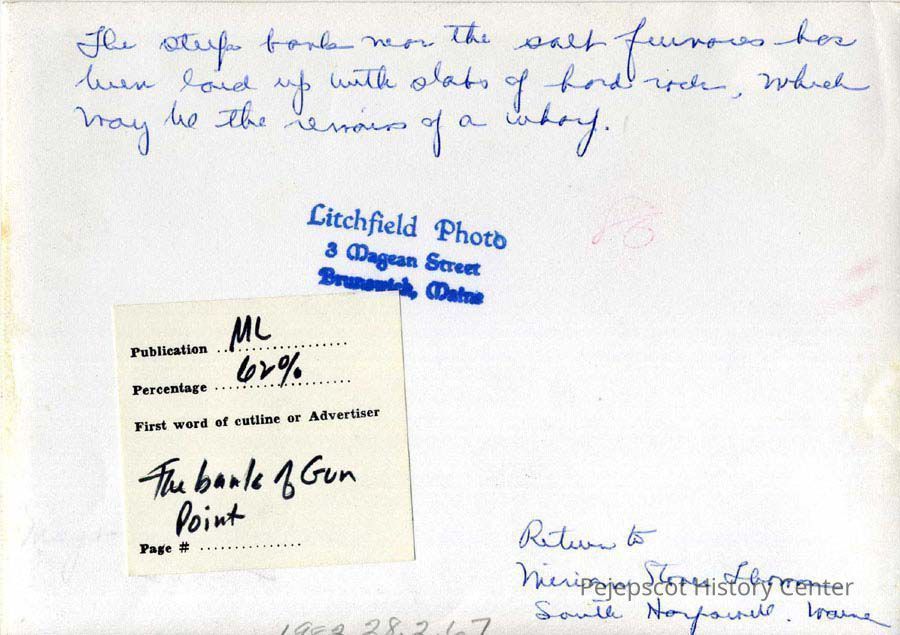 The steep bank near the salt furnaces has
been laid up with slabs of hard rock, which
may be the remains of a wharf.
Litchfield Photo
3 Magean Street
Brunswick, Maine
Publication ML
Percentage 62%
First word of cutline or Advertiser
The bank of Gun
Point
Page #
Return to
Miriam Thomas
Pejepscot History Center
South Harpswell, Maine
28.2.67